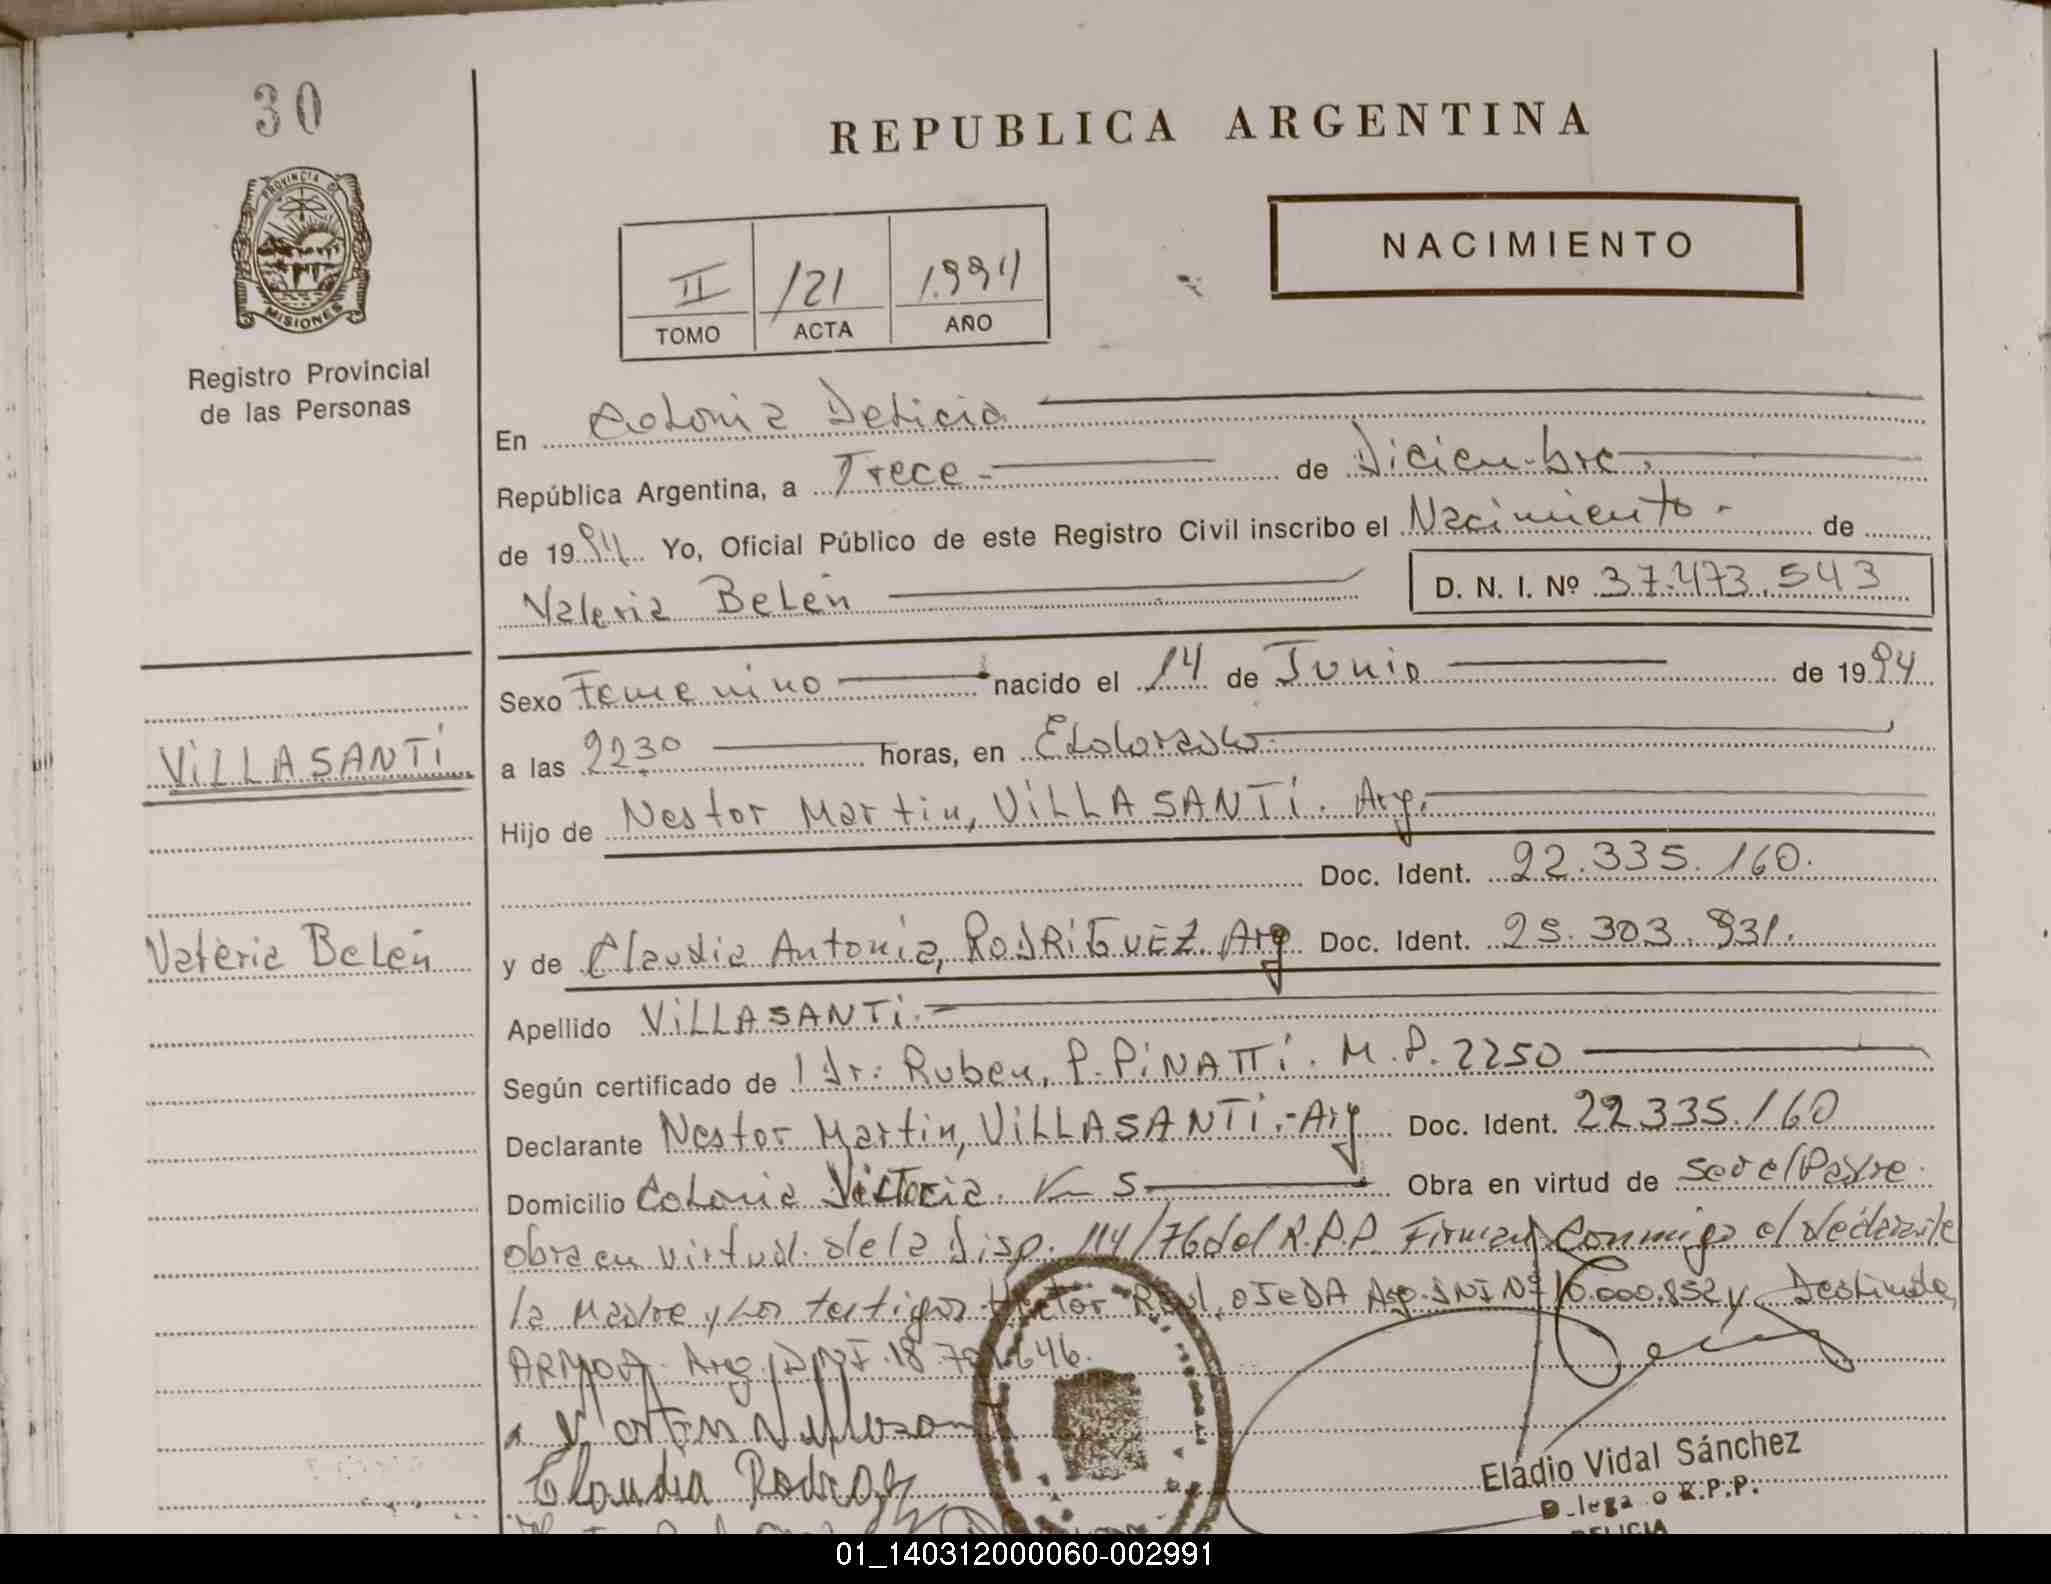 30
REPUBLICA ARGENTINA
PROVINCIA DE
MISIONES
Registro Provincial
de las Personas
NACIMIENTO
II 121 1.994
TOMO ACTA AÑO
En Colonia Delicia
República Argentina, a Trece de Diciembre
de 1994 Yo, Oficial Público de este Registro Civil inscribo el Nacimiento de
Valeria Belén D. N. I. Nº 37.473.543
Sexo Femenino nacido el 14 de Junio de 1994
VILLASANTI
a las 2230 horas, en Eldorado
Hijo de Nestor Martin, VILLASANTI. Arg.
Doc. Ident. 22.335.160.
Valeria Belén
y de Claudia Antonia, RODRIGUEZ. Arg Doc. Ident. 25.303.931.
Apellido VILLASANTI.
Según certificado de Dr: Ruben, P. PINATTI. M.P. 2250
Declarante Nestor Martin, VILLASANTI.-Arg Doc. Ident. 22.335.160
Domicilio Colonia Victoria. Km 5 Obra en virtud de ser el Padre.
obra en virtud. de la Disp. 114/76 del R.P.P. Firman Conmigo el declarante
la Madre y los testigos Hector Raul, OJEDA Arg. DNI Nº 16.000.852 y Deolinda,
ARMOA. Arg. DNI. 18 646.
Claudia
Eladio Vidal Sánchez
R.P.P.
01_140312000060-002991